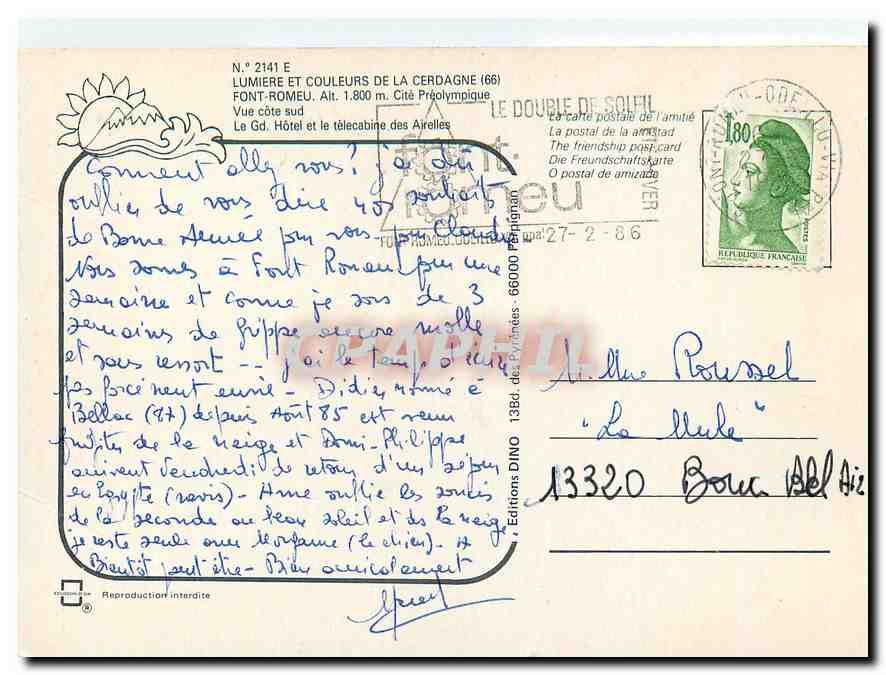 N.° 2141 E
LUMIERE ET COULEURS DE LA CERDAGNE (66)
FONT-ROMEU. Alt. 1.800 m. Cité Préolympique
Vue côte sud
Le Gd. Hôtel et le télecabine des Airelles
LE DOUBLE DE SOLEIL
ETE HIVER
font-
romeu
FONT-ROMEU-ODEILLO
27-2-86
La carte postale de l'amitié
La postal de la amistad
The friendship post card
Die Freundschaftskarte
O postal de amizada
FONT-ROMEU-ODEILLO-VIA
1,80
POSTES
REPUBLIQUE FRANÇAISE
Comment allez vous? j'ai dû
oublier de vous dire nos souhaits
de Bonne Année pour vous pour Claudie
Nous sommes à Font Romeu pour une
semaine et comme je sors de 3
semaines de grippe encore molle
et sans ressort -- j'ai le temps
pas forcément envie - Didier nommé à
Bellac (87) depuis Août 85 est venu
profiter de la neige et Domi-Philippe
arrivent Vendredi de retour d'un séjour
en Egypte (ravis) - Anne oublie les soucis
de la seconde au beau soleil et ds la neige
je reste seule avec Morgane (le chien) - A
Bientôt peut être - Bien amicalement
Editions DINO 13Bd. des Pyrénées - 66000 Perpignan
CPAPHIL
M. Mme Roussel
"La Mule"
13320 Bouc Bel Air
Reproduction interdite
®